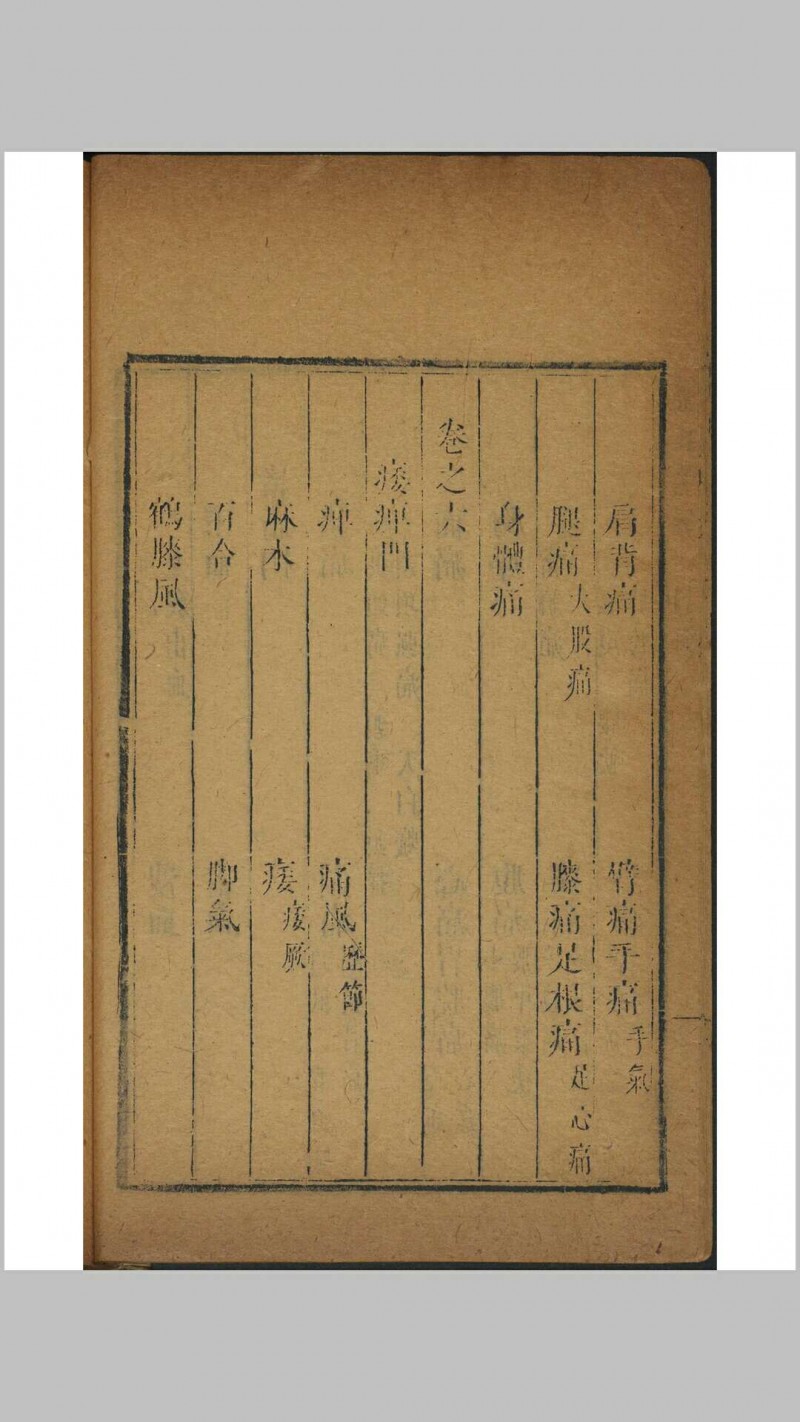 肩背痛 臂痛手痛手氣
腿痛大股痛 膝痛足根痛足心痛
身體痛
卷之六
痿痺門
痺 痛風歷節
麻木 痿痿厥
百合 脚氣
鶴膝風